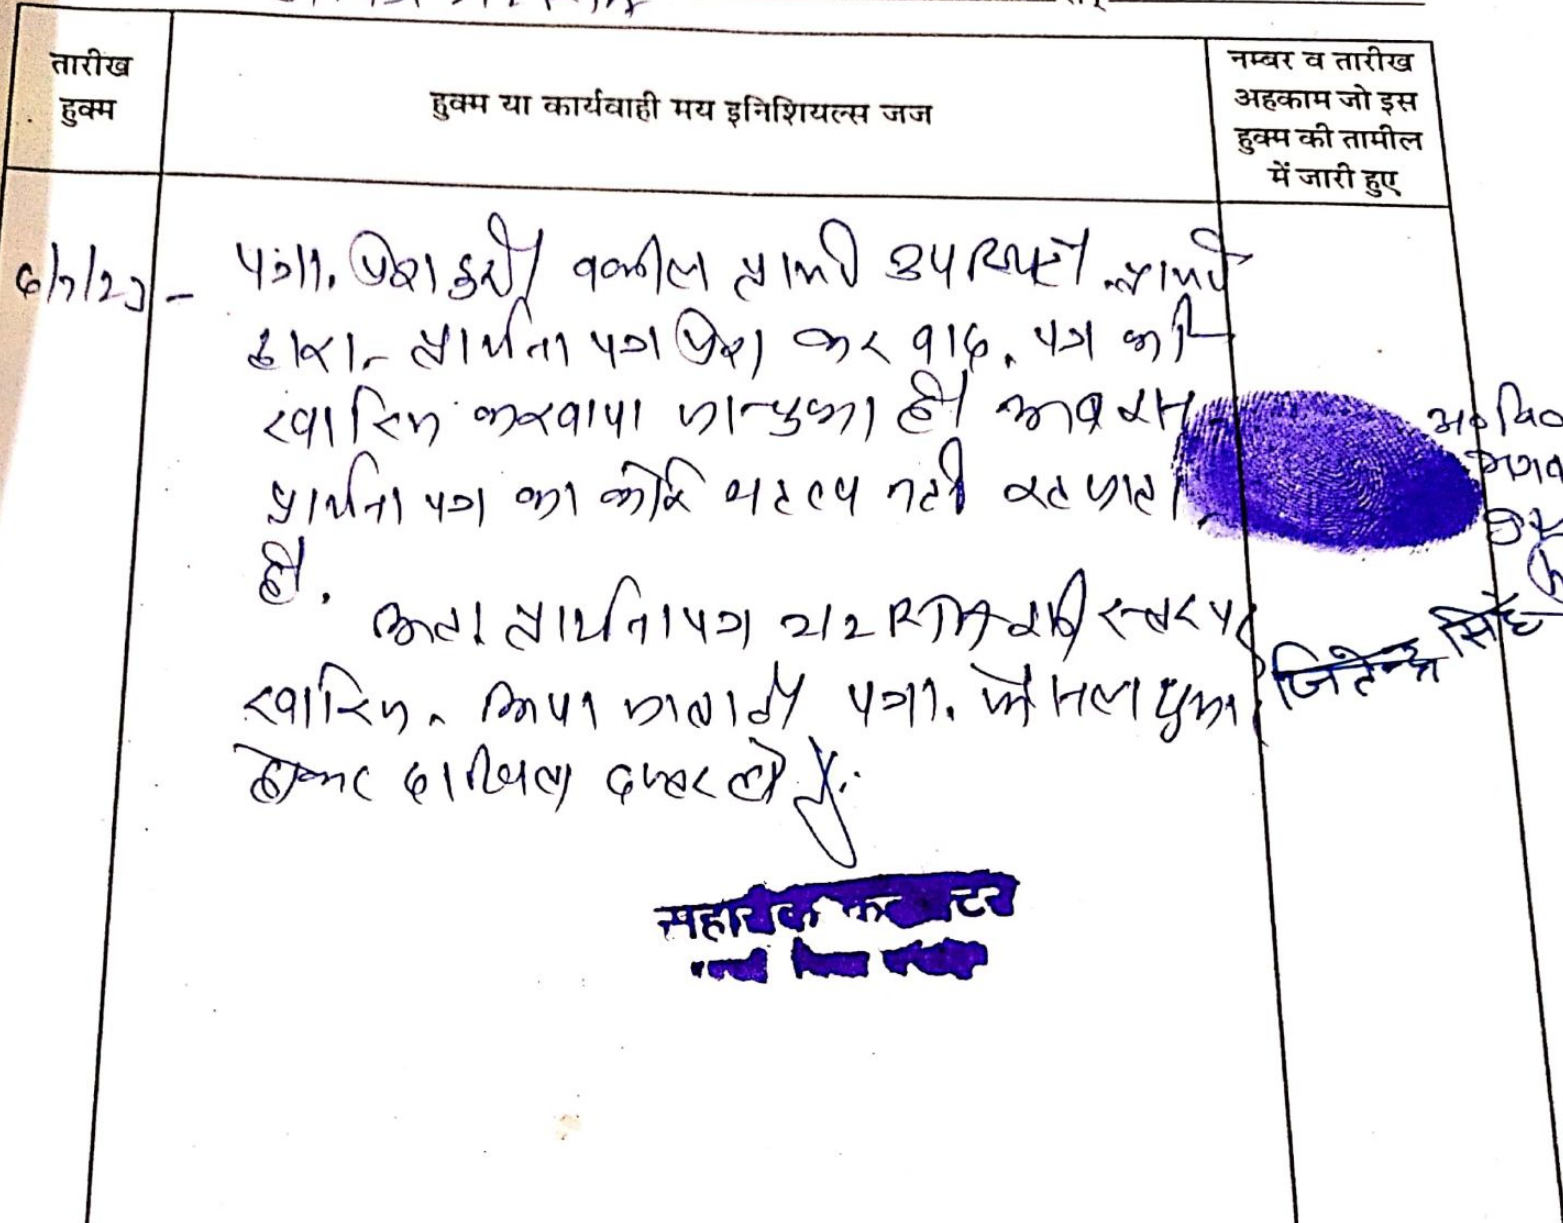 तारीख
हुक्म
हुक्म या कार्यवाही मय इनिशियल्स जज
नम्बर व तारीख
अहकाम जो इस
हुक्म की तामील
में जारी हुए
6/7/23 - पत्रा. पेश हुयी वकील प्रार्थी उपस्थित प्रार्थी
द्वारा प्रार्थना पत्र पेश कर वाद पत्र को
खारिज करवाया जा चुका है। अब इस
प्रार्थना पत्र का कोई महत्व नही रह जाता
है.
अतः प्रार्थना पत्र 212 RTA इसी स्तर पर
खारिज किया जाता है पत्रा. फैसल शुमार
होकर दाखिल दफ्तर हो
जितेन्द्र सिंह
सहायक कलक्टर